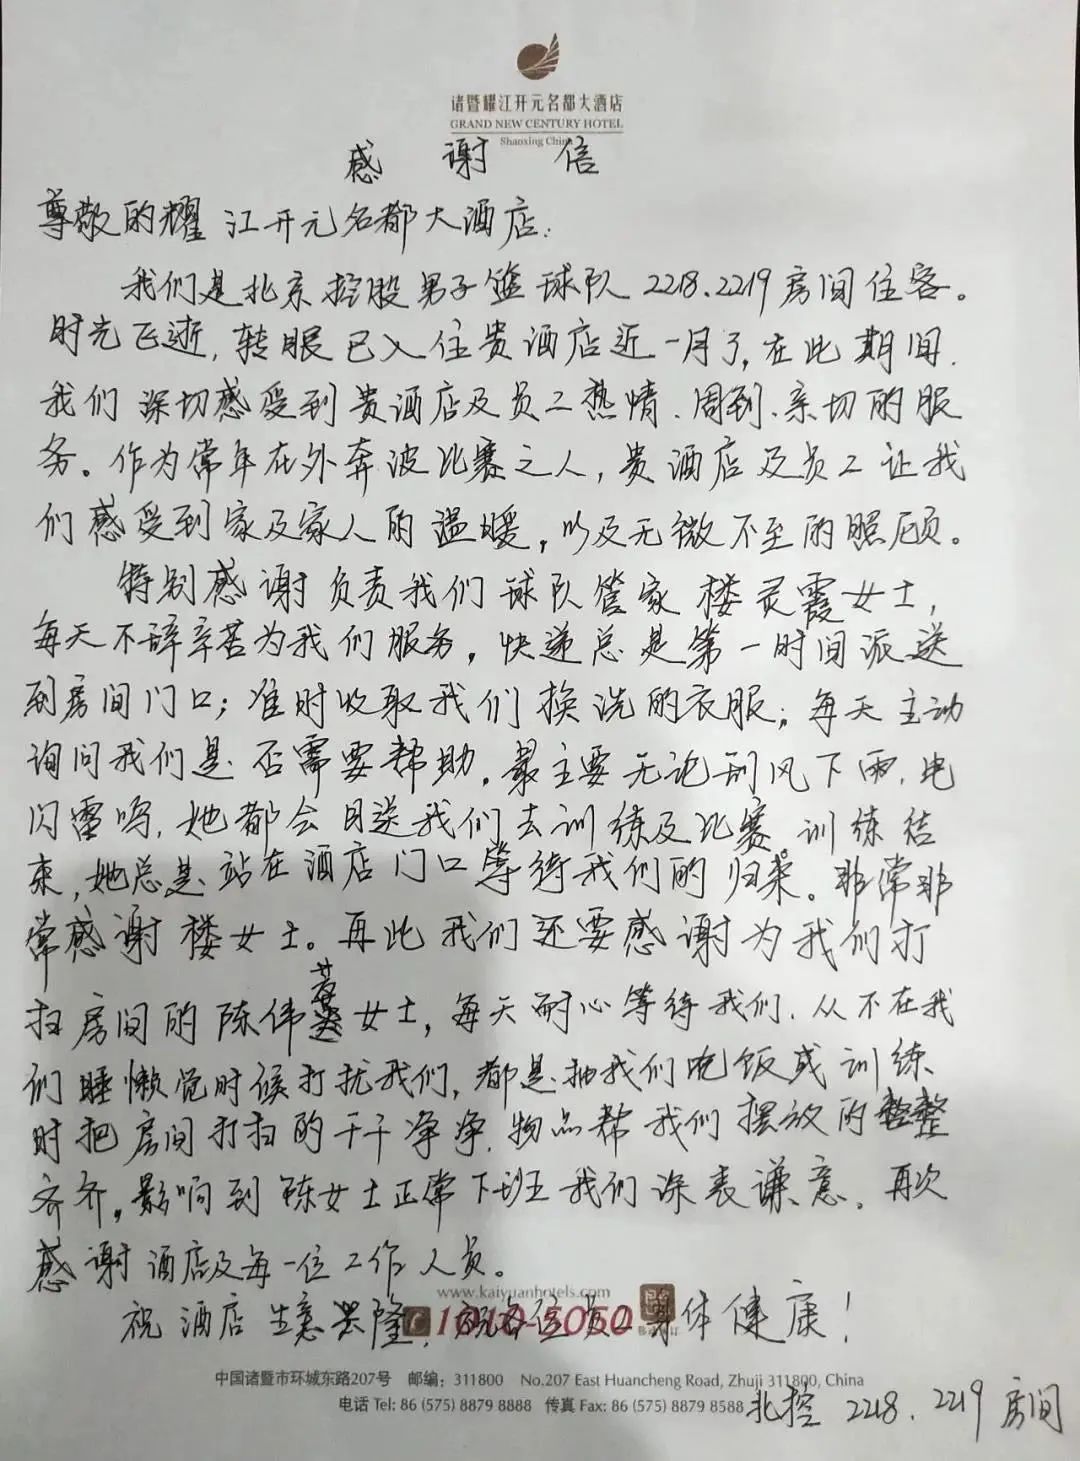 诸暨耀江开元名都大酒店
GRAND NEW CENTURY HOTEL
Shaoxing China
感谢信
尊敬的耀江开元名都大酒店:
我们是北京控股男子篮球队2218、2219房间住客。
时光飞逝,转眼已入住贵酒店近一月了,在此期间,
我们深切感受到贵酒店及员工热情、周到、亲切的服
务。作为常年在外奔波比赛之人,贵酒店及员工让我
们感受到家及家人的温暖,以及无微不至的照顾。
特别感谢负责我们球队管家楼灵霞女士,
每天不辞辛苦为我们服务,快递总是第一时间派送
到房间门口;准时收取我们换洗的衣服;每天主动
询问我们是否需要帮助。最主要无论刮风下雨,电
闪雷鸣,她都会目送我们去训练及比赛。训练结
束,她总是站在酒店门口等待我们的归来。非常非
常感谢楼女士。再此我们还要感谢为我们打
扫房间的陈伟女士,每天耐心等待我们,从不在我
们睡懒觉时候打扰我们,都是抽我们吃饭或训练
时把房间打扫的干干净净,物品帮我们摆放的整整
齐齐。影响到陈女士正常下班我们深表谦意。再次
感谢酒店及每一位工作人员。
www.kaiyuanhotels.com
祝酒店生意兴隆,祝各位员工身体健康!
1010-5050
中国诸暨市环城东路207号 邮编:311800 No.207 East Huancheng Road, Zhuji 311800, China
电话 Tel: 86 (575) 8879 8888 传真 Fax: 86 (575) 8879 8588
北控 2218、2219房间